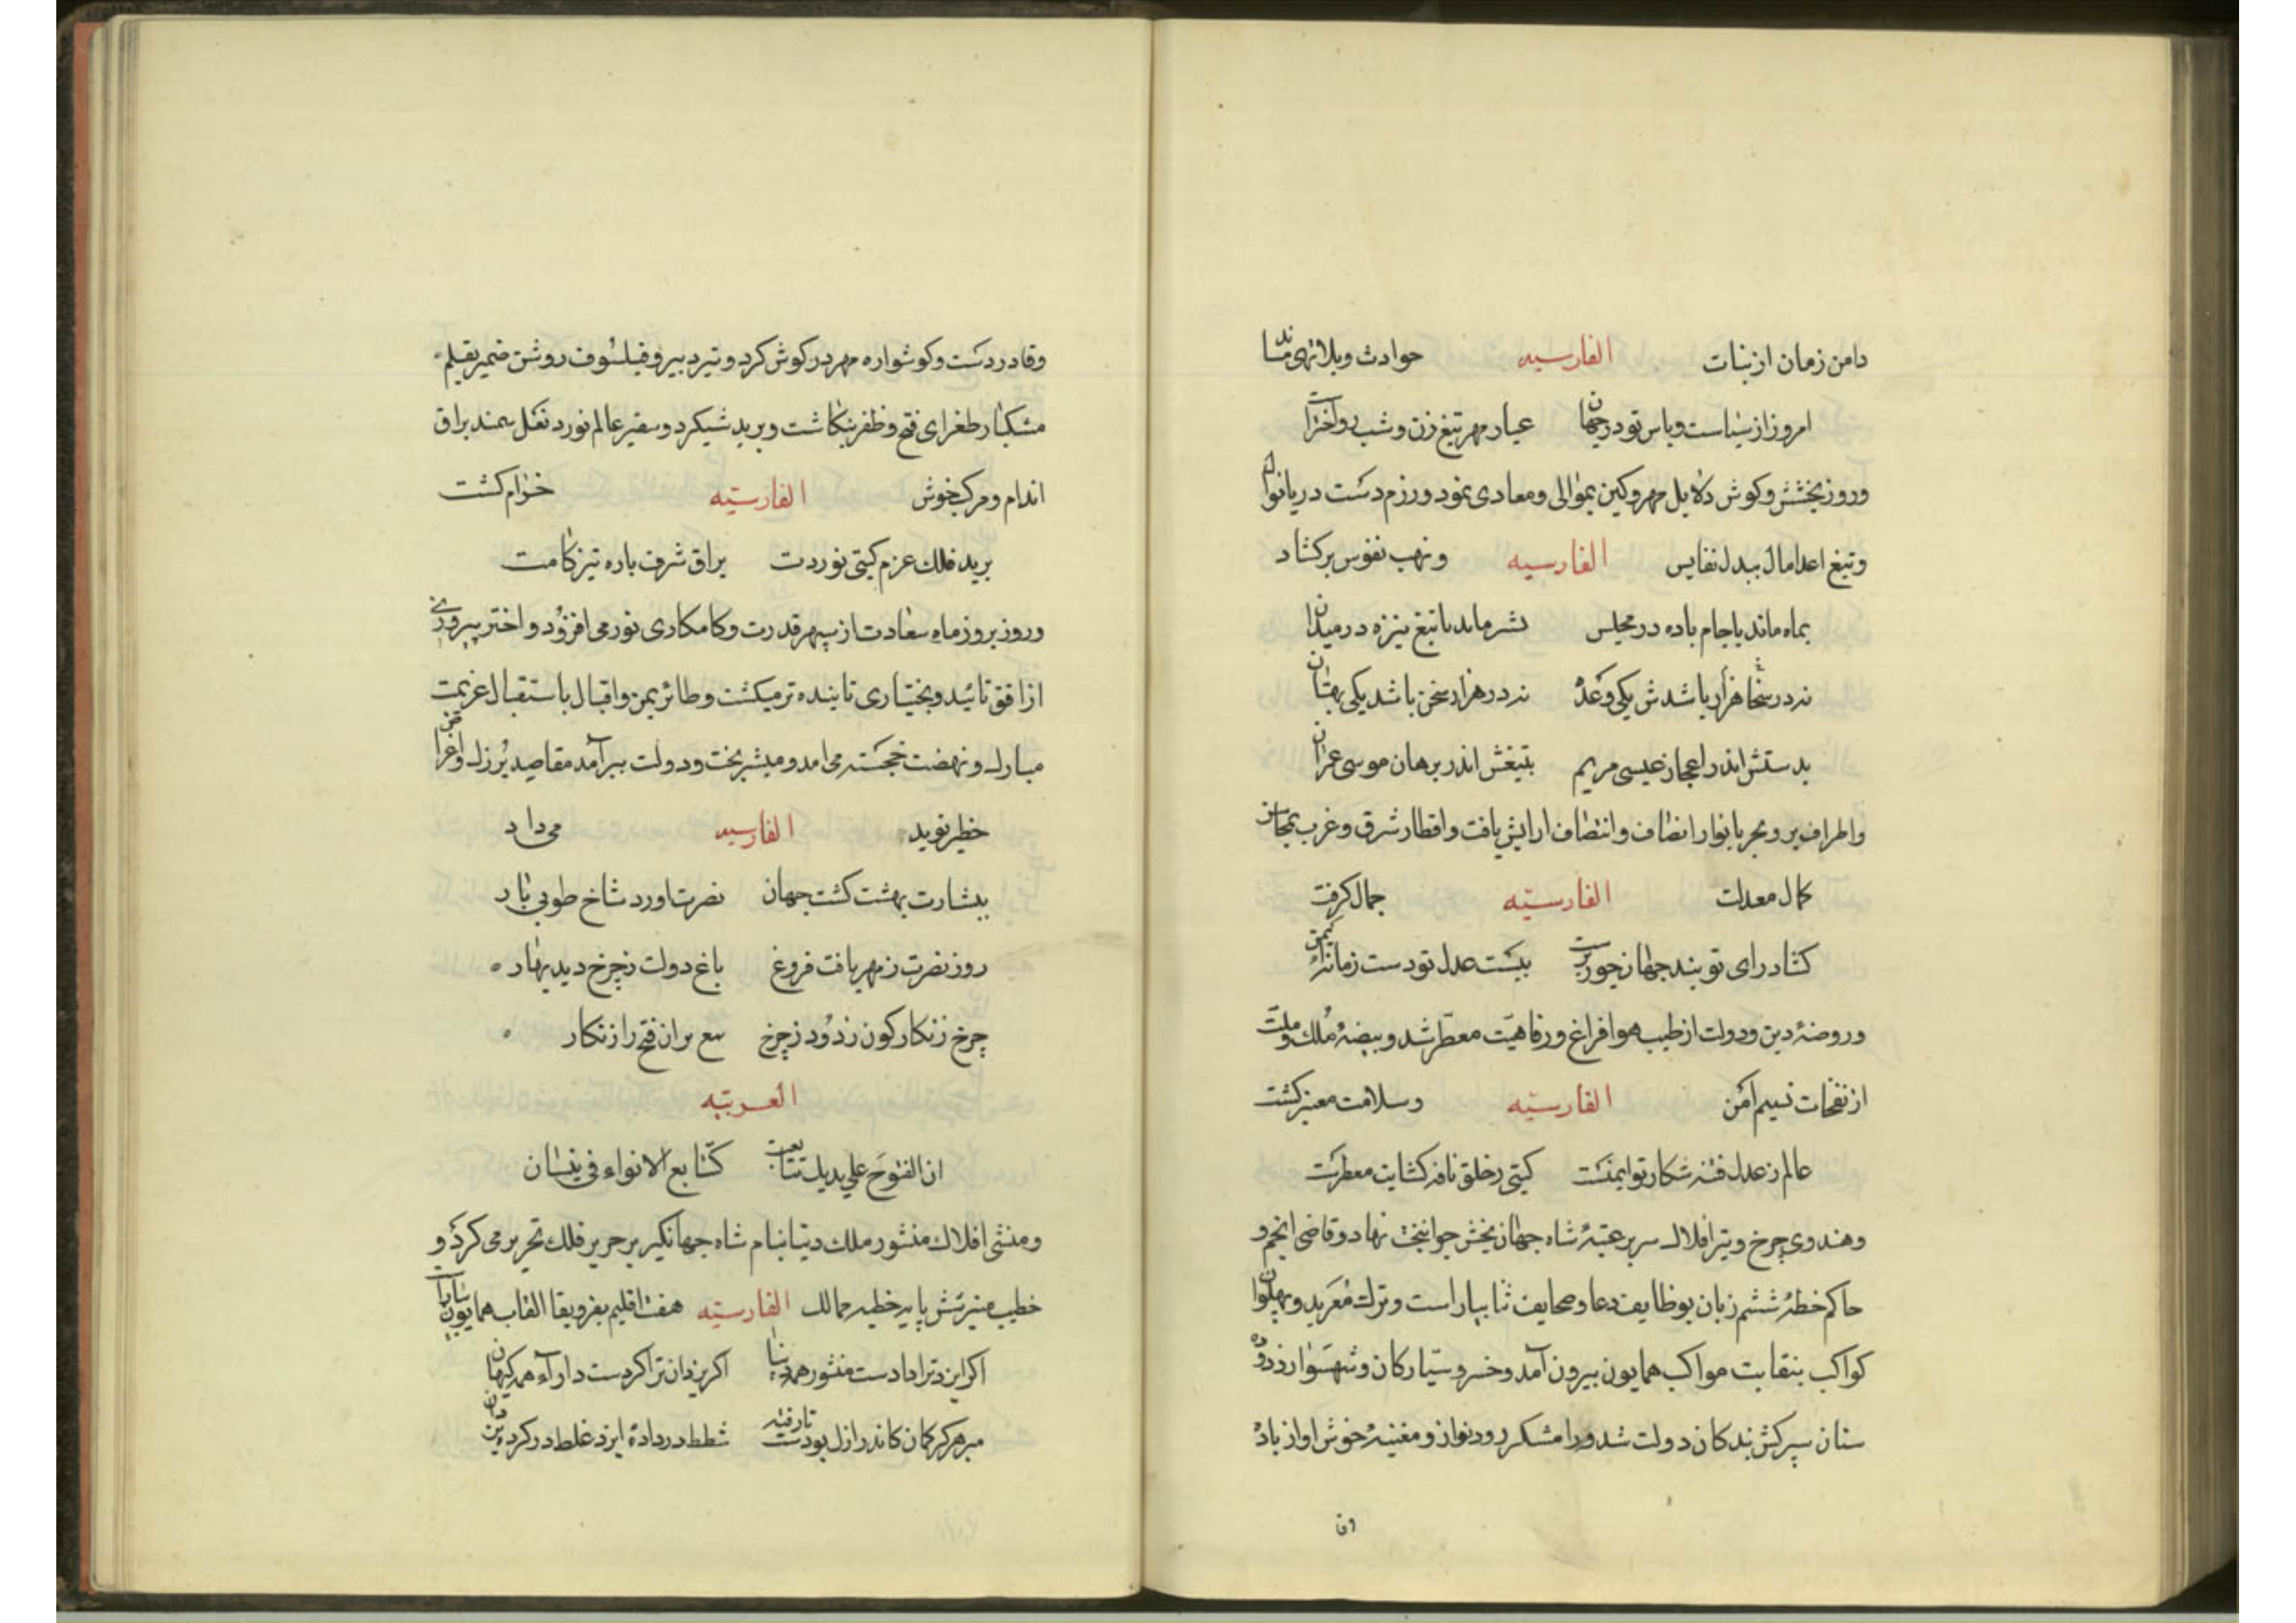 دامن زمان از بنات الفارسیه حوادث و بلا تهی ماند تا
امروز از سیاست و باس تو در جهان عیار مهر تیغ زن و شب رو اخترا ست
و روز بخشش و کوشش دلایل مهر و کین بموالی و معادی نمود و رزم دست دریا نوال
و تیغ اعدا مال ببدل نفایس الفارسیه و نهب نفوس برکشاد
بماه ماند با جام باده در مجلس بشر ماند با تیغ نیزه در میدان
نه در سخا هزار باشدش یکی وعده نه در هزار سخن باشد یکی بهتان
بدستش اندر اعجاز عیسی مریم بتیغش اندر برهان موسی عمران
و اطراف بر و بحر بانوار انصاف و انتصاف ارایش یافت و اقطار شرق و غرب بمحاسن
کمال معدلت الفارسیّه جمال کرفت
کشاد رای تو بند جهان ز جور ببست عدل تو دست زمانه از
و روضهٔ دین و دولت از طیب هوا فراغ و رفاهیّت معطّر شد و بیضهٔ مُلک و ملّت
از نفحات نسیم امن الفارسیّه و سلامت معنبر کشت
عالم ز عدل فتنه شکار تو ایمنست کیتی ز خلق نافه کشایت معطرست
و هندوی چرخ و تیر افلاک سر بر عتبهٔ شاه جهان بخش جوانبخت نهاد و قاضی انجم و
حاکم خطهٔ ششم زبان بوظایف دعا و صحایف ثنا بیاراست و ترک مُعَربد و پهلوان
کواکب بنقابت مواکب همایون بیرون آمد و خسرو سیّارکان و شهسوار زرده
سنان سپرکش بندکان دولت شد و رامشکر رود نواز و مغنیهٔ خوش اواز باد
وقا
وقا در دست و کوشواره مهر در کوش کرد و تیر دبیر و فیلسوف روشن ضمیر بقلم
مشکبار طغرای فتح و ظفر بنکاشت و برید شبکرد و سفیر عالم نورد نعل سمند براق
اندام و مرکب خوش الفارسیّه خرام کشت
برید فلک عزم کیتی نوردت براق شرف باره تیز کامت
و روز بروز ماه سعادت از سپهر قدرت و کامکاری نور می افزود و اختر پیروزی
از افق تائید و بختیاری تابنده تر میکشت و طائر یمن و اقبال باستقبال عزیمت
مبارک و نهضت خجسته می امد و مبشر بخت و دولت ببرآمد مقاصد بزرک و اغراض
خطیر نوید الفارسیه می داد
ببشارت بهشت کشت جهان نصرت اورد شاخ طوبی بار
روز نصرت ز مهر یافت فروغ باغ دولت ز چرخ دید بهار
چرخ زنکار کون زدود ز چرخ تیغ بران فتح را زنکار
العربیّه
ان الفتوحَ علی یدیک تتابعت کتتابع الانواء فی نیسان
و منشی افلاک منشور ملک دنیا بنام شاه جهانکیر بر حریر فلک تحریر می کرد و
خطیب منبر شش پایه خطبه ممالک الفارسیّه هفت اقلیم بفر و بقا القاب همایون
اکر ایزد ترا دادست منشور همه دنیا اکر یزدان ترا کردست دارآء همه کیهان
مبر هرکز کمان کاندر ازل بودست تا رفته شطط در دادهٔ ایزد غلط در کرده یزدان